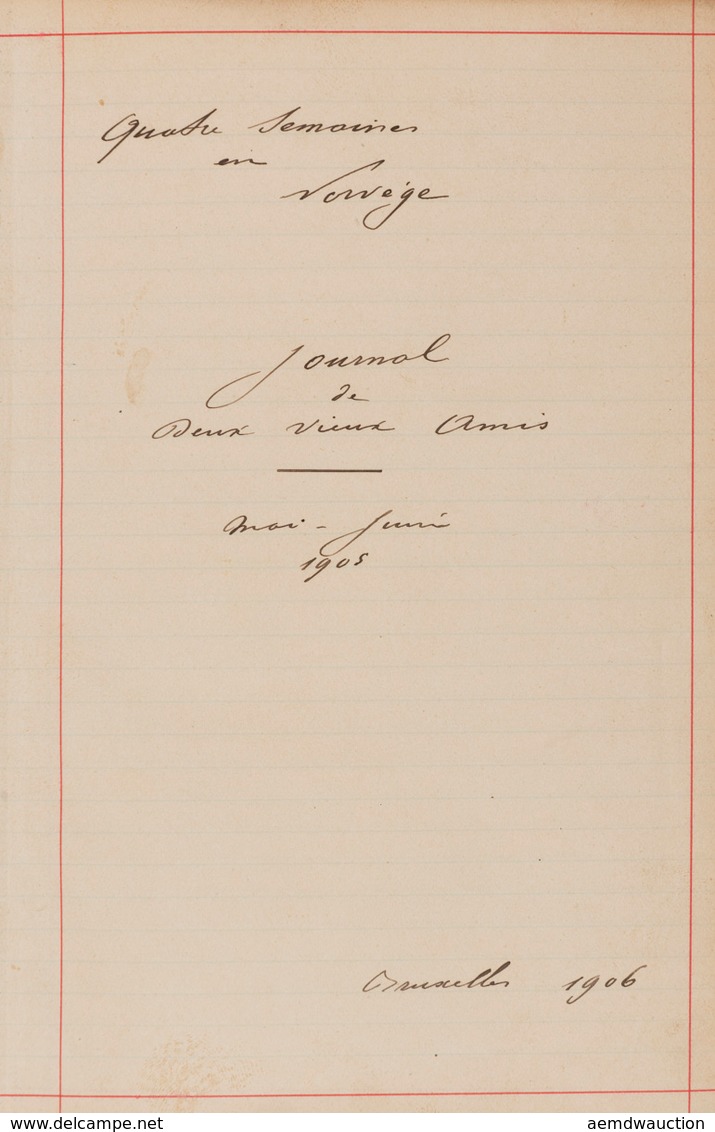 Quatre Semaines
en
Norvège
Journal
de
Deux Vieux Amis
Mai - Juin
1905
Bruxelles 1906
www.delcampe.net
aemdwauction